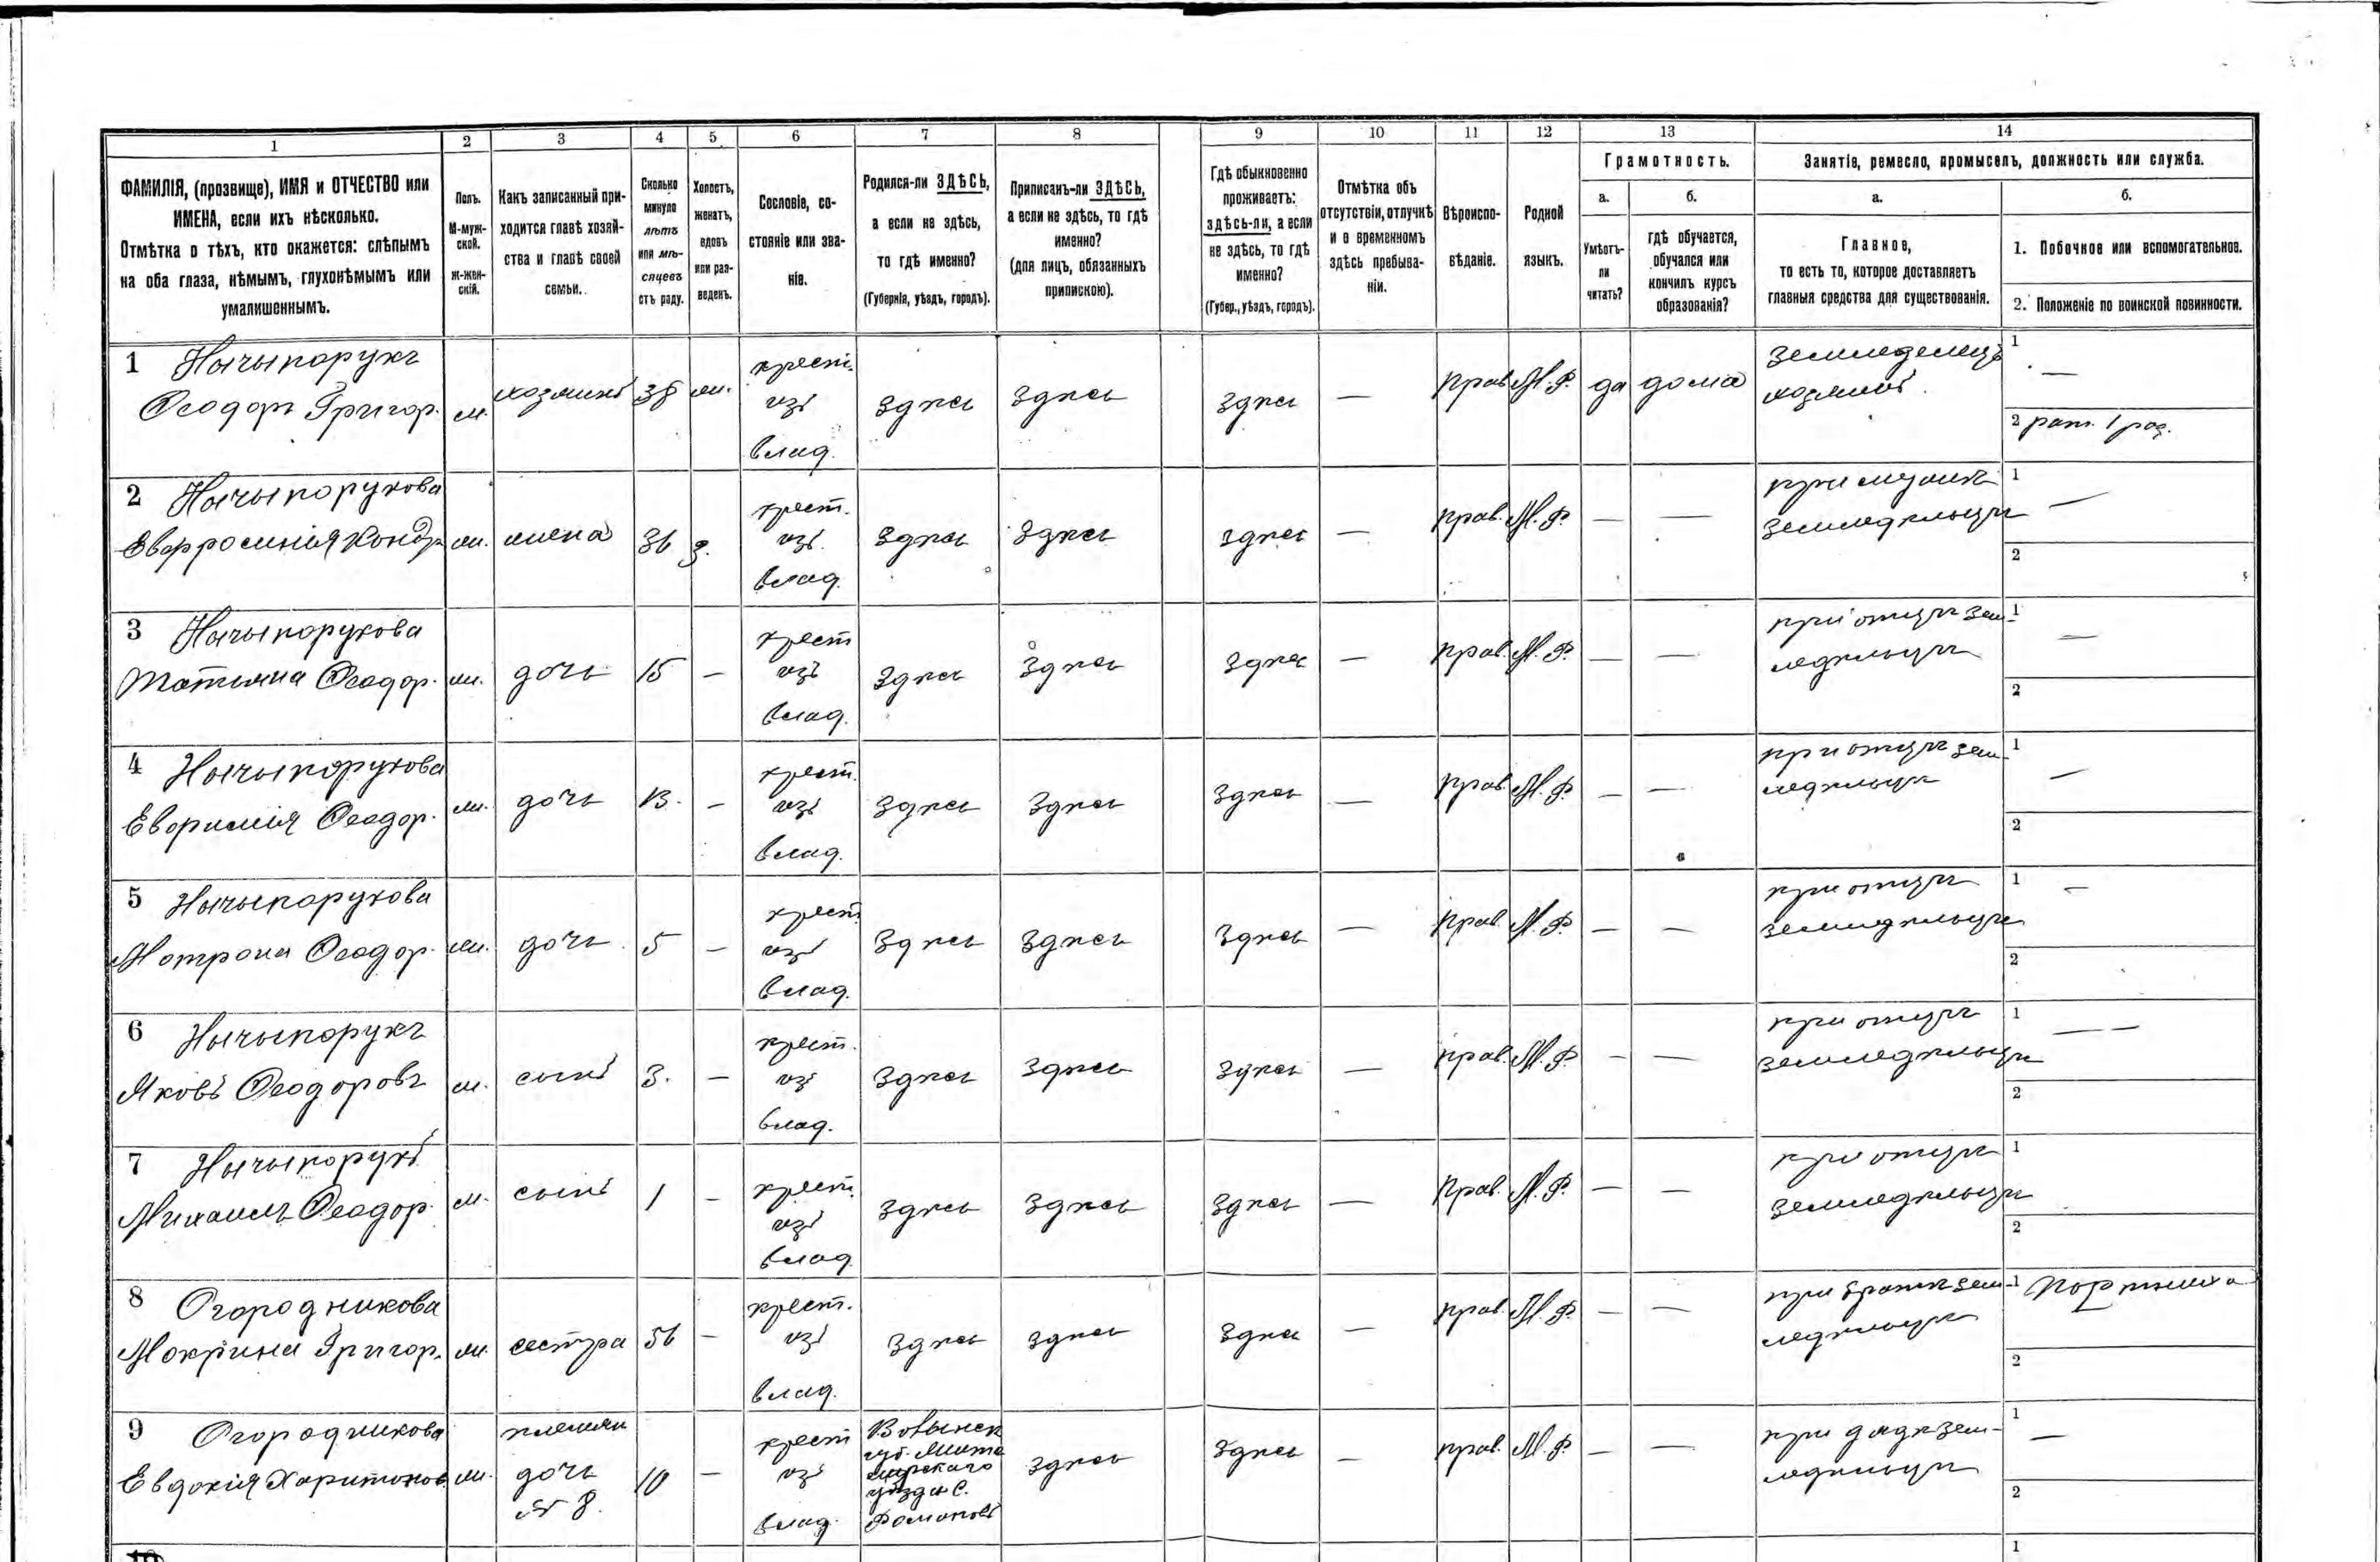 1
2
3
4
5
6
7
8
9
10
11
12
13
14
ФАМИЛІЯ, (прозвище), ИМЯ и ОТЧЕСТВО или
ИМЕНА, если ихъ нѣсколько.
Отмѣтка о тѣхъ, кто окажется: слѣпымъ
на оба глаза, нѣмымъ, глухонѣмымъ или
умалишеннымъ.
Полъ.
М-муж-
ской.
Ж-жен-
скій.
Какъ записанный при-
ходится главѣ хозяй-
ства и главѣ своей
семьи.
Сколько
минуло
лѣтъ
или мѣ-
сяцевъ
отъ роду.
Холостъ,
женатъ,
вдовъ
или раз-
веденъ.
Сословіе, со-
стояніе или зва-
ніе.
Родился-ли ЗДѢСЬ,
а если не здѣсь,
то гдѣ именно?
(Губернія, уѣздъ, городъ).
Приписанъ-ли ЗДѢСЬ,
а если не здѣсь, то гдѣ
именно?
(для лицъ, обязанныхъ
припискою).
Гдѣ обыкновенно
проживаетъ:
здѣсь-ли, а если
не здѣсь, то гдѣ
именно?
(Губер., уѣздъ, городъ).
Отмѣтка объ
отсутствіи, отлучкѣ
и о временномъ
здѣсь пребыва-
ніи.
Вѣроиспо-
вѣданіе.
Родной
языкъ.
Грамотность.
а.
Умѣетъ-
ли
читать?
б.
гдѣ обучается,
обучался или
кончилъ курсъ
образованія?
Занятія, ремесло, промыселъ, должность или служба.
а.
Главное,
то есть то, которое доставляетъ
главныя средства для существованія.
б.
1. Побочное или вспомогательное.
2. Положеніе по воинской повинности.
1 Ничыпорукъ
Ѳеодоръ Григор.
м.
хозяинъ
38
ж.
крест.
изъ
влад.
здѣсь
здѣсь
здѣсь
—
прав.
М. Р.
да
дома
земледелецъ
хозяинъ.
1 —
2 рат. 1 раз.
2 Ничыпорукова
Евфросинія Кондр.
ж.
жена
36
з.
крест.
изъ
влад.
здѣсь
здѣсь
здѣсь
—
прав.
М. Р.
—
—
при мужѣ
земледѣльцѣ
1 —
2
3 Ничыпорукова
Татьяна Ѳеодор.
ж.
дочь
15
—
крест
изъ
влад.
здѣсь
здѣсь
здѣсь
—
прав.
М. Р.
—
—
при отцѣ зем-
ледѣльцѣ
1 —
2
4 Ничыпорукова
Евфимія Ѳеодор.
ж.
дочь
13.
—
крест.
изъ
влад.
здѣсь
здѣсь
здѣсь
—
прав.
М. Р.
—
—
при отцѣ зем-
ледѣльцѣ
1 —
2
5 Ничыпорукова
Мотрона Ѳеодор.
ж.
дочь
5
—
крест.
изъ
влад.
здѣсь
здѣсь
здѣсь
—
прав.
М. Р.
—
—
при отцѣ
земледѣльцѣ
1 —
2
6 Ничыпорукъ
Яковъ Ѳеодоровъ
м.
сынъ
3.
—
крест.
изъ
влад.
здѣсь
здѣсь
здѣсь
—
прав.
М. Р.
—
—
при отцѣ
земледѣльцѣ
1 — —
2
7 Ничыпорукъ
Михаилъ Ѳеодор.
м.
сынъ
1
—
крест.
изъ
влад
здѣсь
здѣсь
здѣсь
—
прав.
М. Р.
—
—
при отцѣ
земледѣльцѣ
1
2
8 Огородникова
Мокрина Григор.
ж.
сестра
56
—
крест.
изъ
влад.
здѣсь
здѣсь
здѣсь
—
прав.
М. Р.
—
—
при братѣ зем-
ледѣльцѣ
1 Портниха
2
9 Огородникова
Евдокія Харитонов.
ж.
племян
дочь
№ 8.
10
—
крест
изъ
влад.
Волынск
губ. Жито
мирскаго
уѣзда с.
здѣсь
здѣсь
—
прав.
М. Р.
—
—
при дядѣ зем-
ледѣльцѣ
1 —
2
10
1